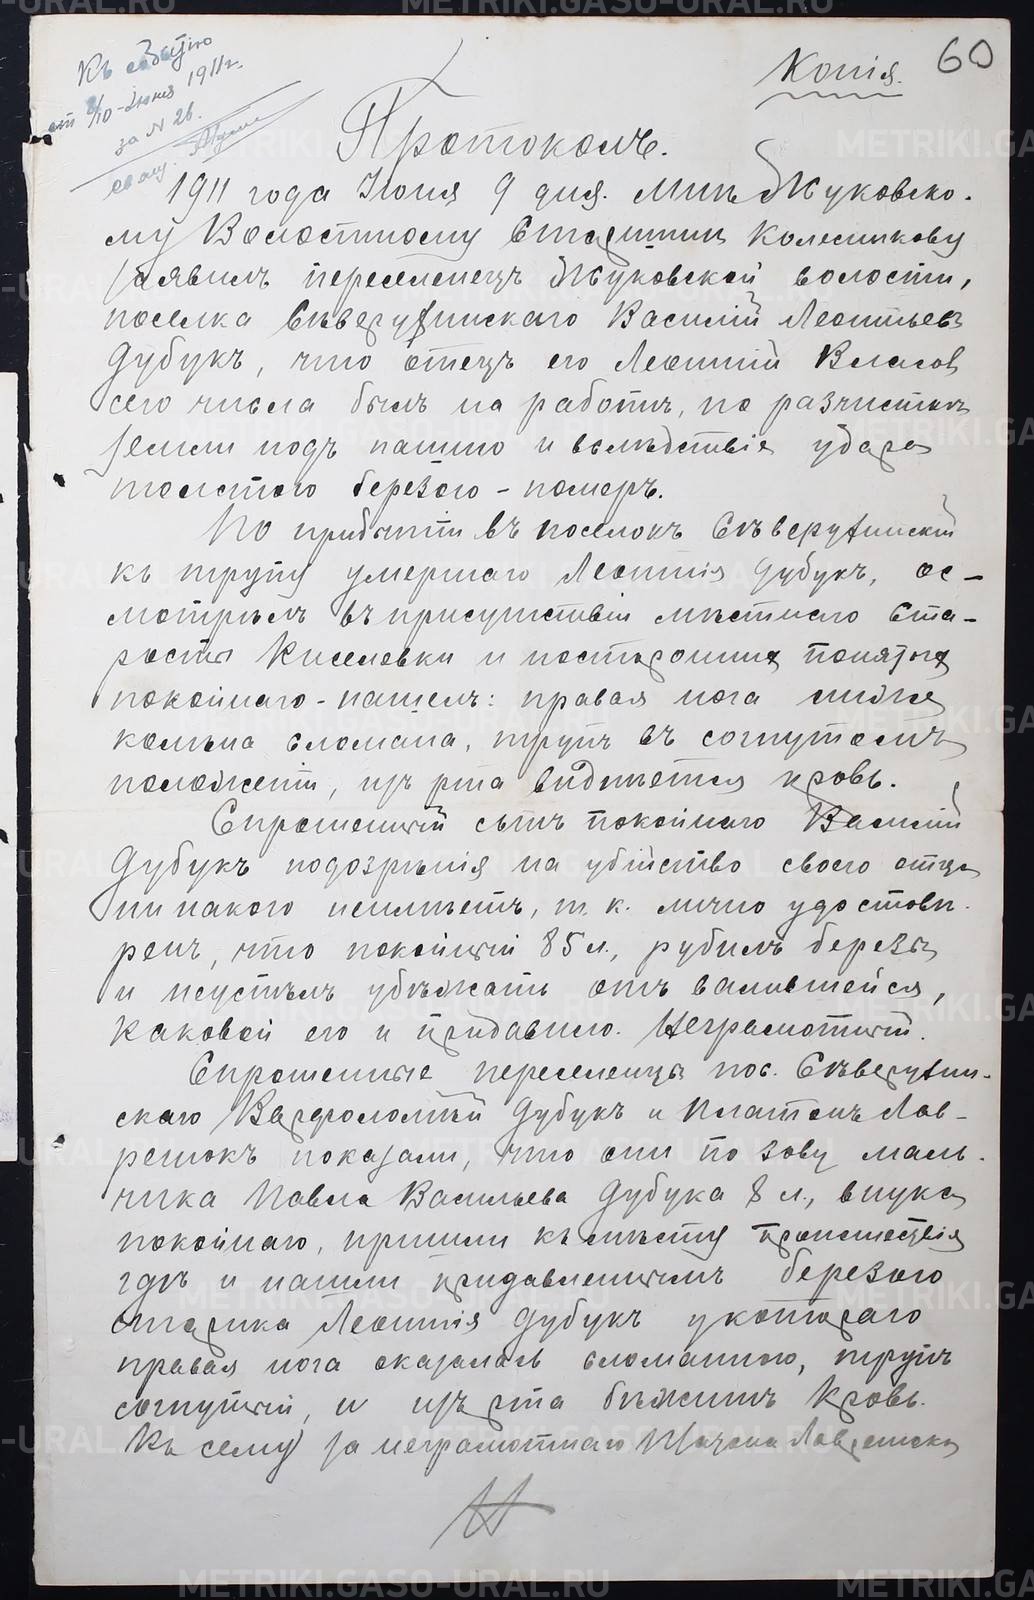 Къ событію
от 8/10 Июня 1911 г.
за № 26.
60
Копія.
Протоколъ.
1911 года Іюня 9 дня. Мнѣ Жуковско-
му Волостному Старшинѣ Колесникову
заявилъ переселенецъ Жуковской волости,
поселка Сѣверутинскаго Василій Леонтьевъ
Дубукъ, что отецъ его Леонтій Власов
сего числа былъ на работѣ, по разчисткѣ
земли подъ пашню и вслѣдствіе удара
толстою березою - померъ.
По прибытіи въ поселокъ Сѣверутинскій
къ трупу умершаго Леонтія Дубукъ, ос-
мотрѣлъ въ присутствіи мѣстнаго Ста-
росты Киселевки и постороннихъ понятыхъ
покойнаго - нашелъ: правая нога ниже
колѣна сломана, трупъ въ согнутомъ
положеніи, изъ рта виднѣется кровь.
Спрошенный сынъ покойнаго Василій
Дубукъ подозрѣнія на убійство своего отца
ни на кого неимѣетъ, т. к. лично удостовѣ-
ренъ, что покойный 85 л., рубилъ березы
и неуспѣлъ убѣжать отъ валившейся,
каковой его и придавило. Неграмотный.
Спрошенные переселенцы пос. Сѣверутин-
скаго Варфоломѣй Дубукъ и Платонъ Лав-
ренюкъ показали, что они по зову маль-
чика Павла Васильева Дубука 8 л., внука
покойнаго, пришли къ мѣсту происшествія
гдѣ и нашли придавленнымъ березою
старика Леонтія Дубукъ у котораго
правая нога оказалась сломанною, трупъ
согнутый, и изъ рта бѣжитъ кровь.
Къ сему за неграмотнаго Платона Лавренюка